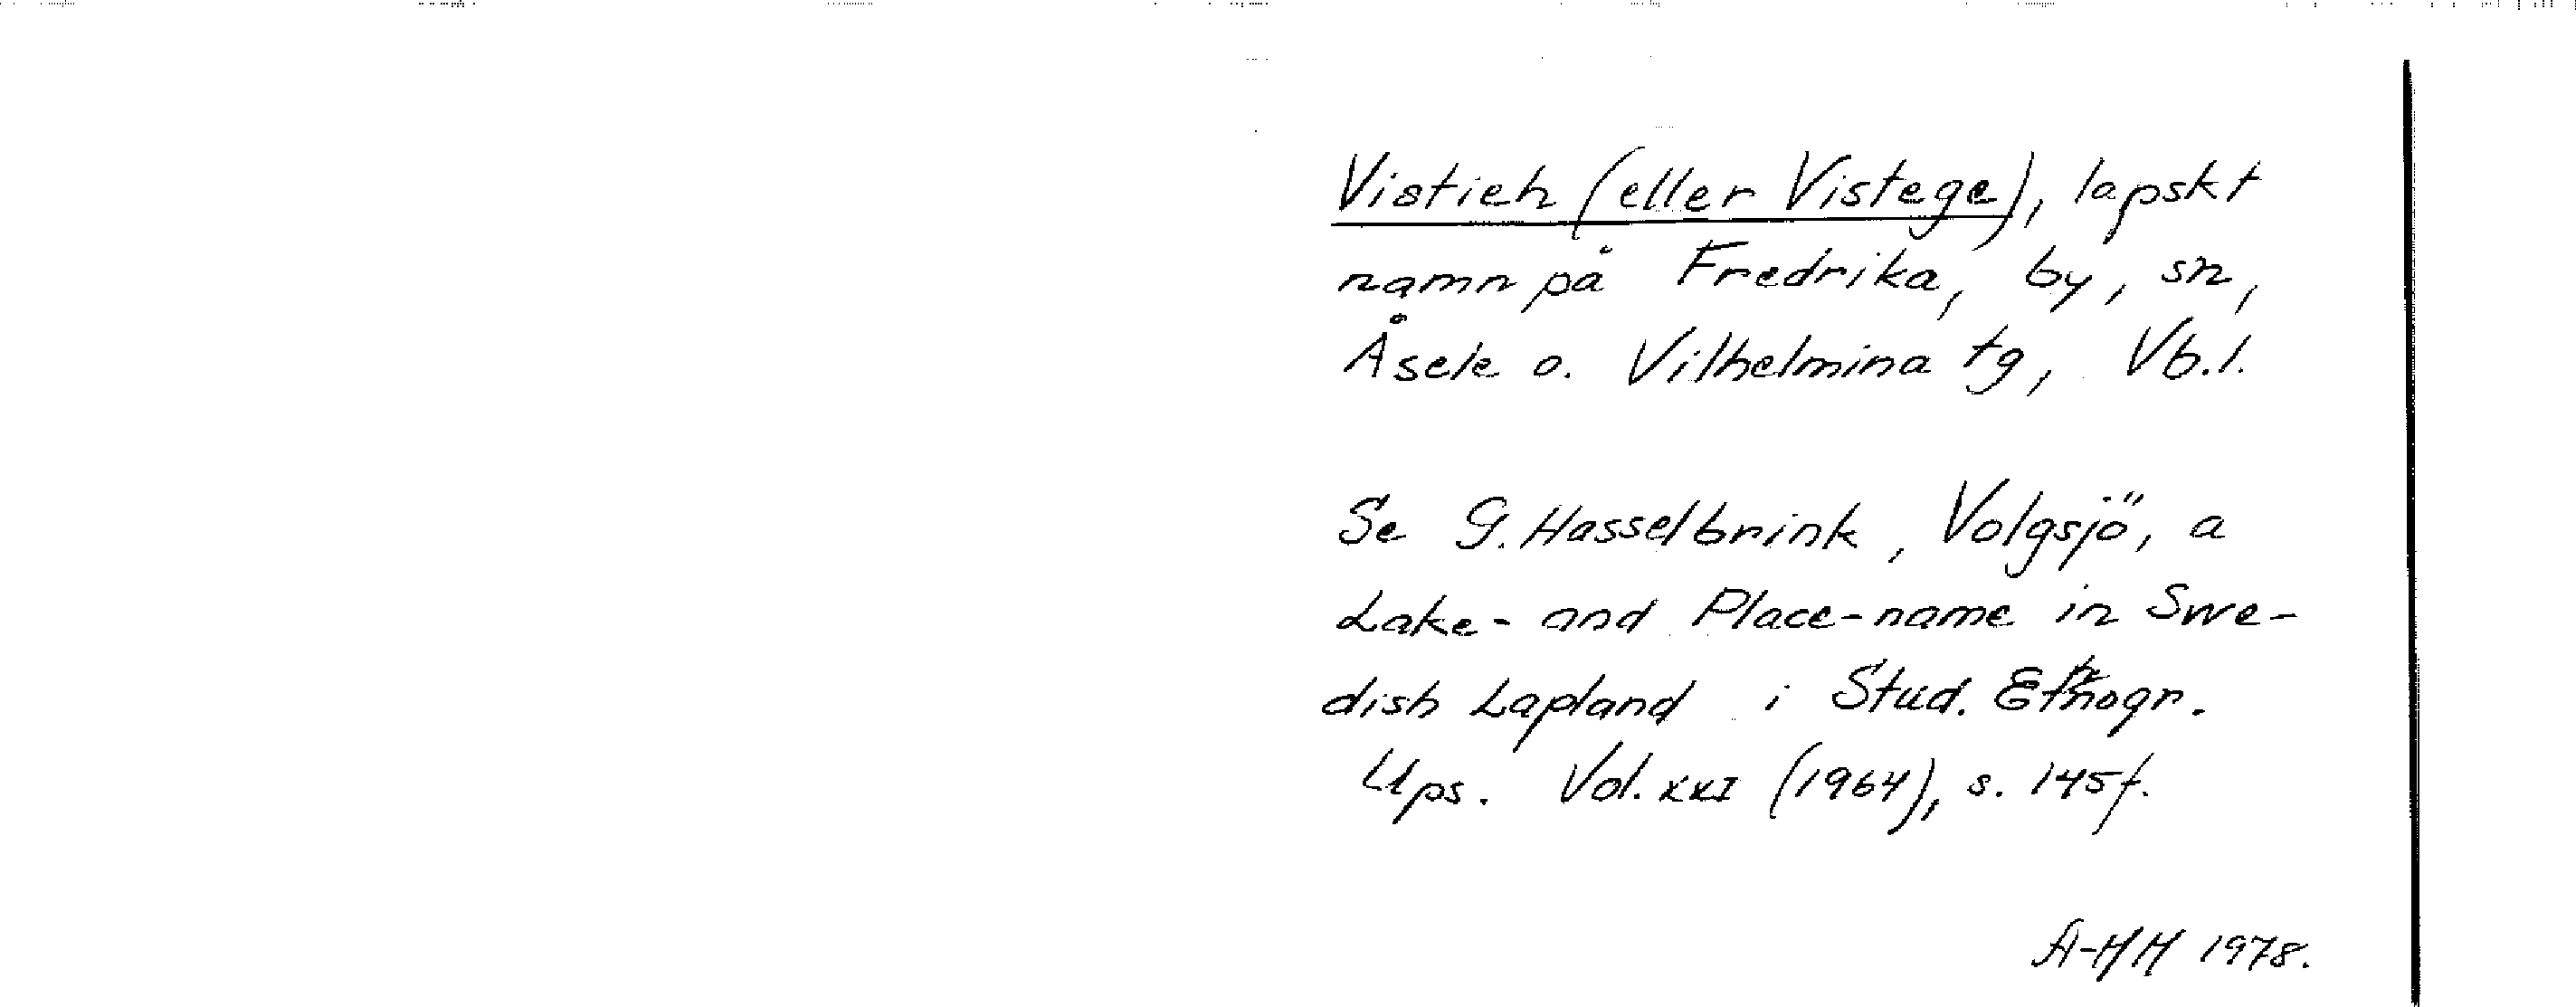 Vistieh (eller Vistege), lapskt
namn på Fredrika, by, sn,
Åsele o. Vilhelmina tg, Vb.l.
Se G. Hasselbrink, Volgsjö, a
Lake- and Place-name in Swe-
dish Lapland i Stud. Ethnogr.
Ups. Vol. XXI (1964), s. 145f.
A-MM 1978.